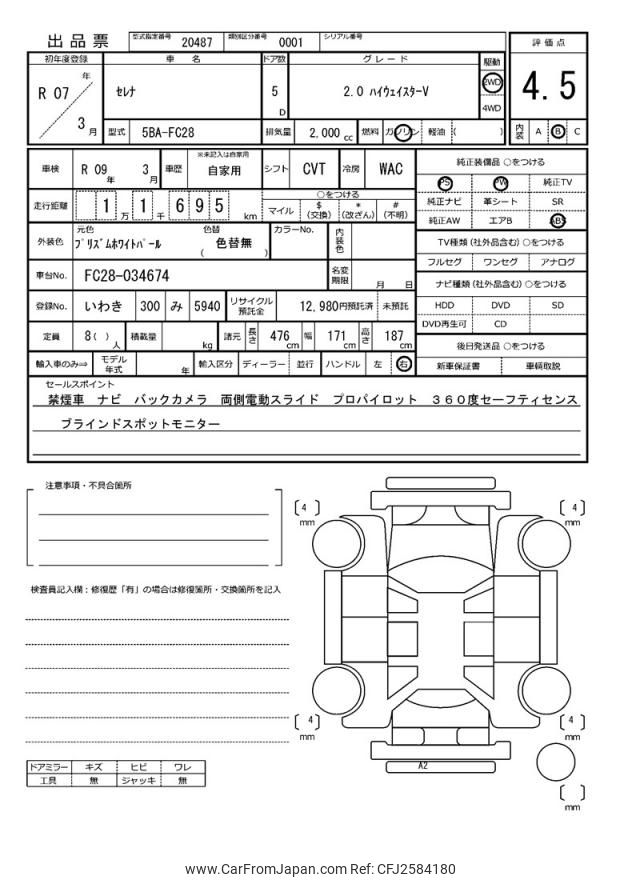 出品票 型式指定番号 20487 類別区分番号 0001 シリアル番号
評価点
4.5
内装 A B C
初年度登録 車名 ドア数 グレード 駆動
R 07 年 3 月 セレナ 5 D 2.0 ハイウェイスターV 2WD 4WD
型式 5BA-FC28 排気量 2,000 cc 燃料 ガソリン 軽油 ( )
車検 R 09 年 3 月 車歴 ※未記入は自家用 自家用 シフト CVT 冷房 WAC
走行距離 1 万 1 千 6 9 5 km
○をつける
マイル $ (交換) * (改ざん) # (不明)
外装色 元色 プリズムホワイトパール 色替 ( 色替無 ) カラーNo. 内装色
車台No. FC28-034674 名変期限 月 日
登録No. いわき 300 み 5940 リサイクル預託金 12,980円預託済 未預託
定員 8( ) 人 積載量 kg 諸元 長さ 476 cm 幅 171 cm 高さ 187 cm
輸入車のみ⇒ モデル年式 年 輸入区分 ディーラー 並行 ハンドル 左 右
純正装備品 ○をつける
PS PW 純正TV
純正ナビ 革シート SR
純正AW エアB ABS
TV種類 (社外品含む) ○をつける
フルセグ ワンセグ アナログ
ナビ種類 (社外品含む) ○をつける
HDD DVD SD
DVD再生可 CD
後日発送品 ○をつける
新車保証書 車輌取説
セールスポイント
禁煙車 ナビ バックカメラ 両側電動スライド プロパイロット 360度セーフティセンス
ブラインドスポットモニター
注意事項・不具合箇所
検査員記入欄：修復歴「有」の場合は修復箇所・交換箇所を記入
ドアミラー キズ ヒビ ワレ
工具 無 ジャッキ 無
[ 4 ] mm
[ 4 ] mm
[ 4 ] mm
[ 4 ] mm
A2
[ ] mm
www.CarFromJapan.com Ref: CFJ2584180